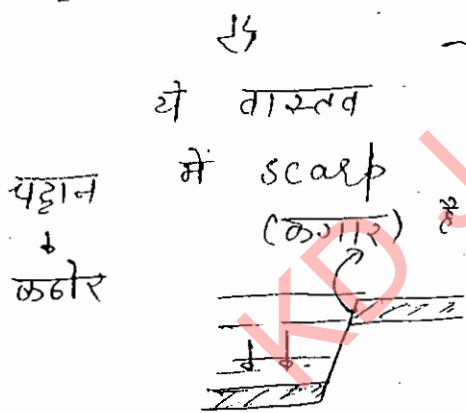 ये वास्तव
में scarp
(कगार) है
चट्टान
↓
कठोर
KD J